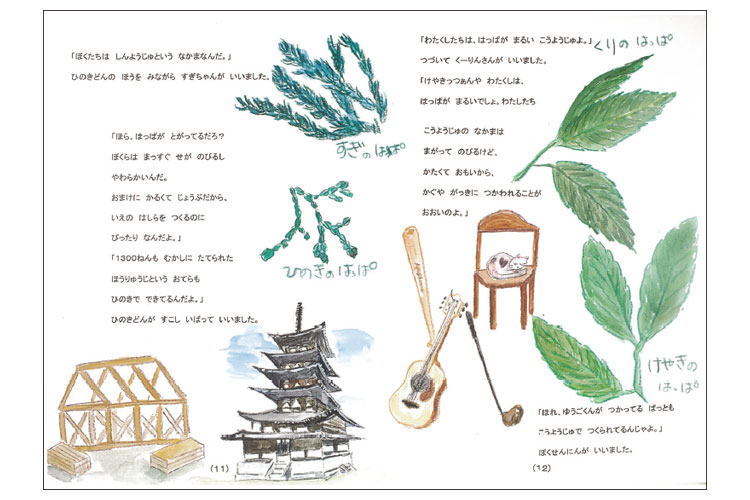 「ぼくたちは しんようじゅという なかまなんだ。」
ひのきどんの ほうを みながら すぎちゃんが いいました。
すぎのはっぱ
「ほら、はっぱが とがってるだろ？
ぼくらは まっすぐ せが のびるし
やわらかいんだ。
おまけに かるくて じょうぶだから、
いえの はしらを つくるのに
ぴったり なんだよ。」
「1300ねんも むかしに たてられた
ほうりゅうじという おてらも
ひのきで できてるんだよ。」
ひのきどんが すこし いばって いいました。
ひのきのはっぱ
(11)
「わたくしたちは、はっぱが まるい こうようじゅよ。」
つづいて くーりんさんが いいました。
「けやきっつぁんや わたくしは、
はっぱが まるいでしょ。わたしたち
くりの はっぱ
こうようじゅの なかまは
まがって のびるけど、
かたくて おもいから、
かぐや がっきに つかわれることが
おおいのよ。」
けやきの
はっぱ
「ほれ、ゆうごくんが つかってる ばっとも
こうようじゅで つくられてるんじゃよ。」
ぼくせんにんが いいました。
(12)